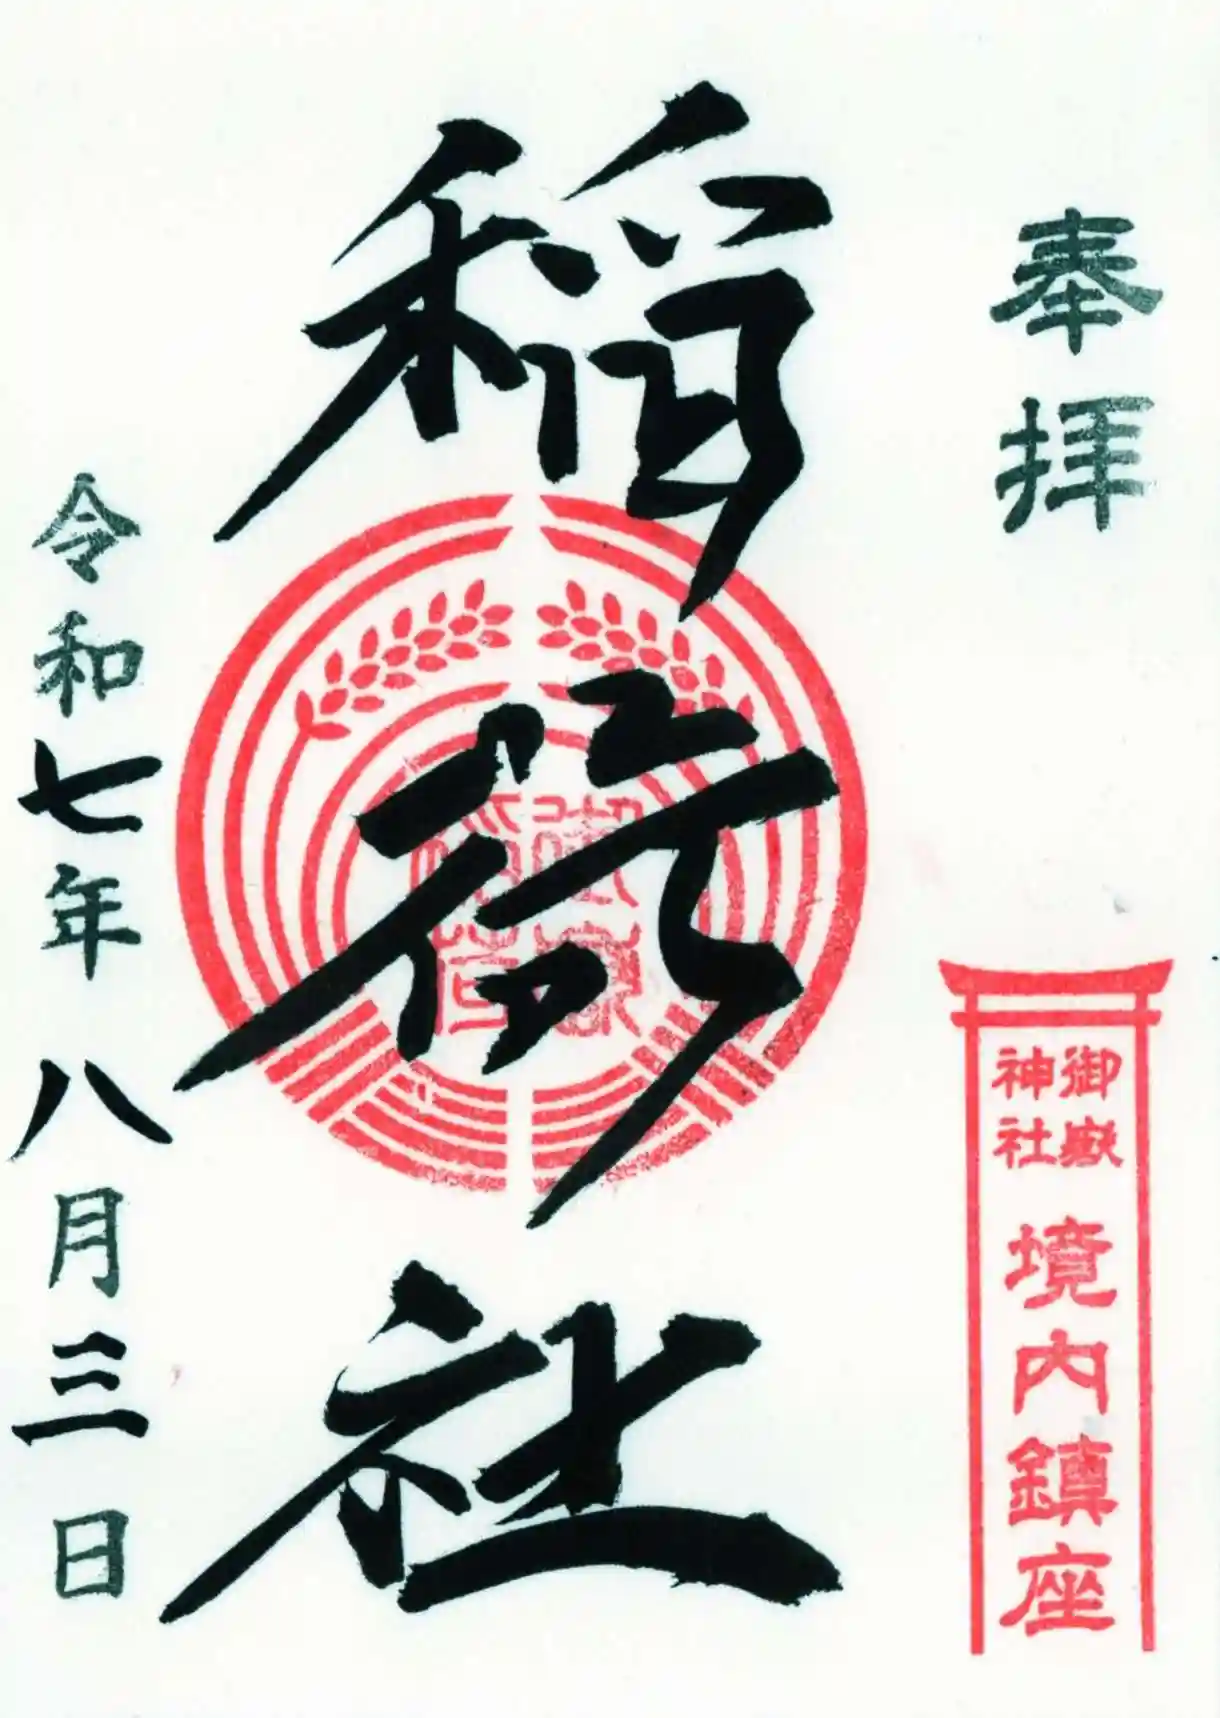 奉拝
御嶽
神社
境内鎮座
稲荷社
令和七年八月三日